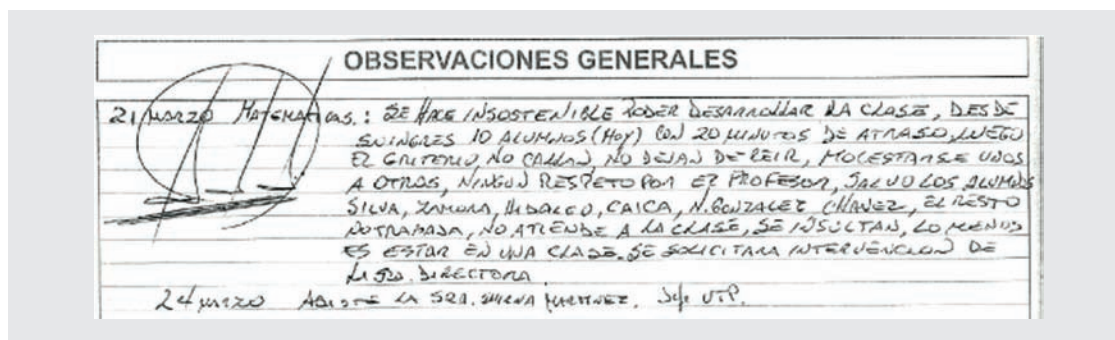 OBSERVACIONES GENERALES
21 MARZO MATEMATICAS.: SE HACE INSOSTENIBLE PODER DESARROLLAR LA CLASE, DESDE
SU INGRES 10 ALUMNOS (HOY) CON 20 MINUTOS DE ATRASO, LUEGO
EL GRITERIO, NO CALLAN, NO DEJAN DE REIR, MOLESTARSE UNOS
A OTROS, NINGUN RESPETO POR EL PROFESOR, SALVO LOS ALUMNOS
SILVA, ZAMORA, HIDALGO, CAICA, N. GONZALEZ CHAVEZ, EL RESTO
NO TRABAJA, NO ATIENDE A LA CLASE, SE INSULTAN, LO MENOS
ES ESTAR EN UNA CLASE. SE SOLICITARA INTERVENCION DE
LA SRA. DIRECTORA.
24 MARZO ASISTE LA SRA. MARTINEZ. Jefe UTP.